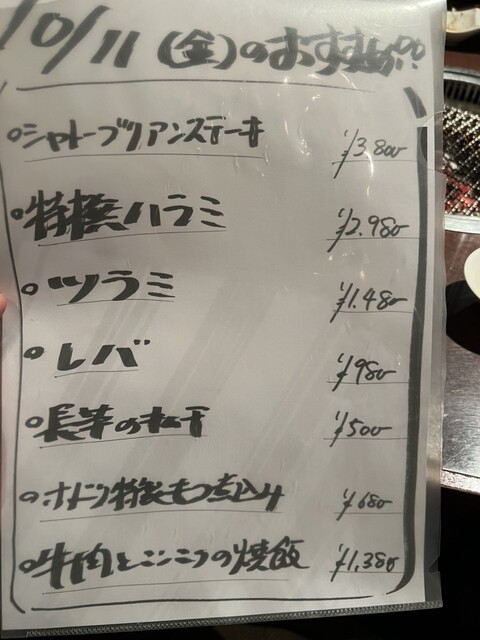 10/11(金)のおすすめ!!
シャトーブリアンステーキ ¥3.800
特撰ハラミ ¥2.980
ツラミ ¥1.480
レバ ¥980
長芋のキムチ ¥500
特製もつ煮込み ¥680
牛肉とニンニクの焼飯 ¥1.380